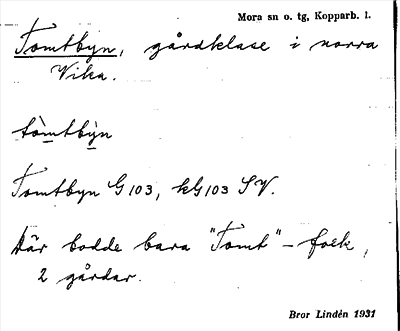 Mora sn o. tg, Kopparb. l.
Tomtbyn, gårdklase i norra
Vika.
tòmtby̆n
Tomtbyn G103, kG103 SV.
Där bodde bara "Tomt"-folk,
2 gårdar.
Bror Lindén 1931